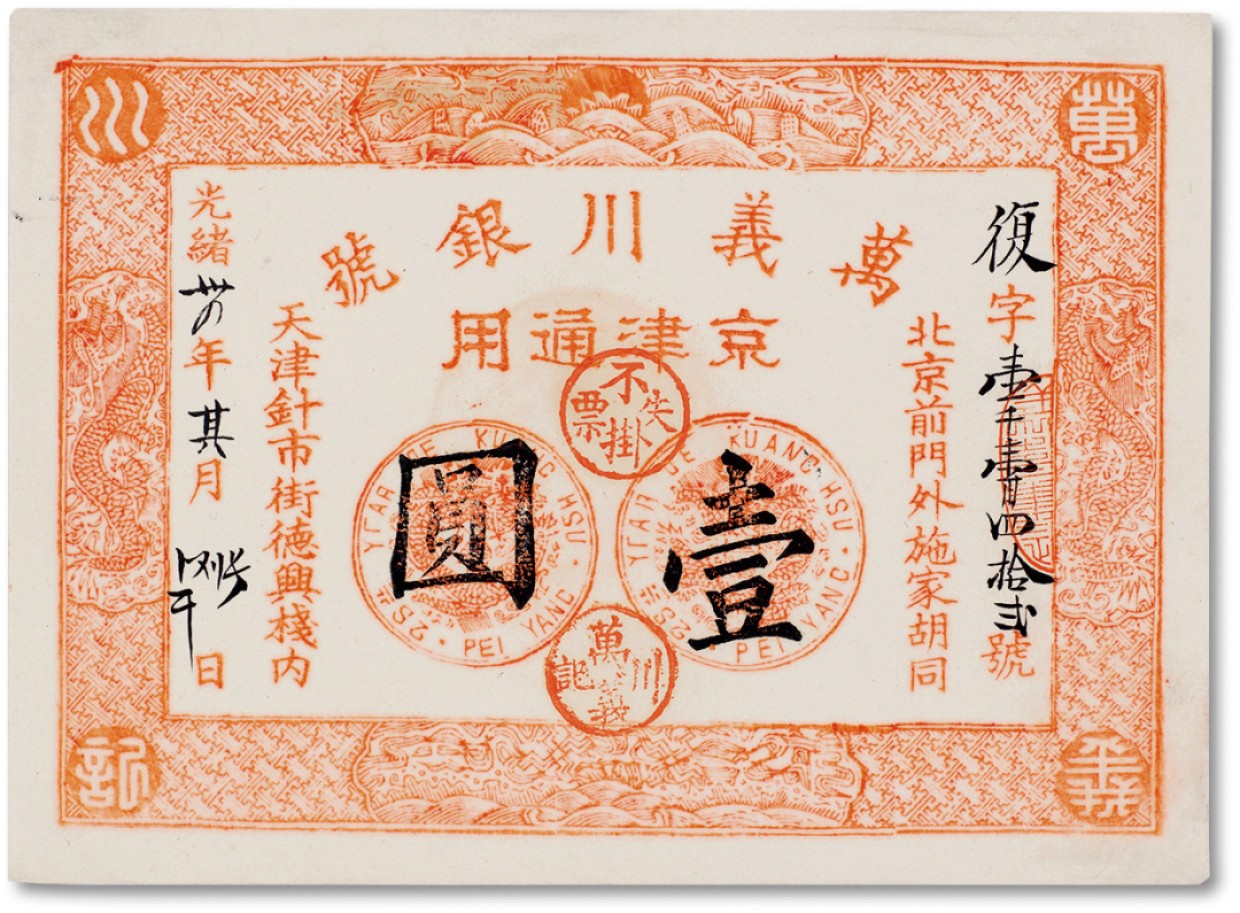 萬
川
義
記
復字壹千壹百四拾弍號
萬義川銀號
京津通用
北京前門外施家胡同
壹圓
天津針市街徳興棧内
光緒卅四年其月日
失票不掛
萬義川記
25 YEAR OF KUANG HSU · PEI YANG ·
25 YEAR OF KUANG HSU · PEI YANG ·